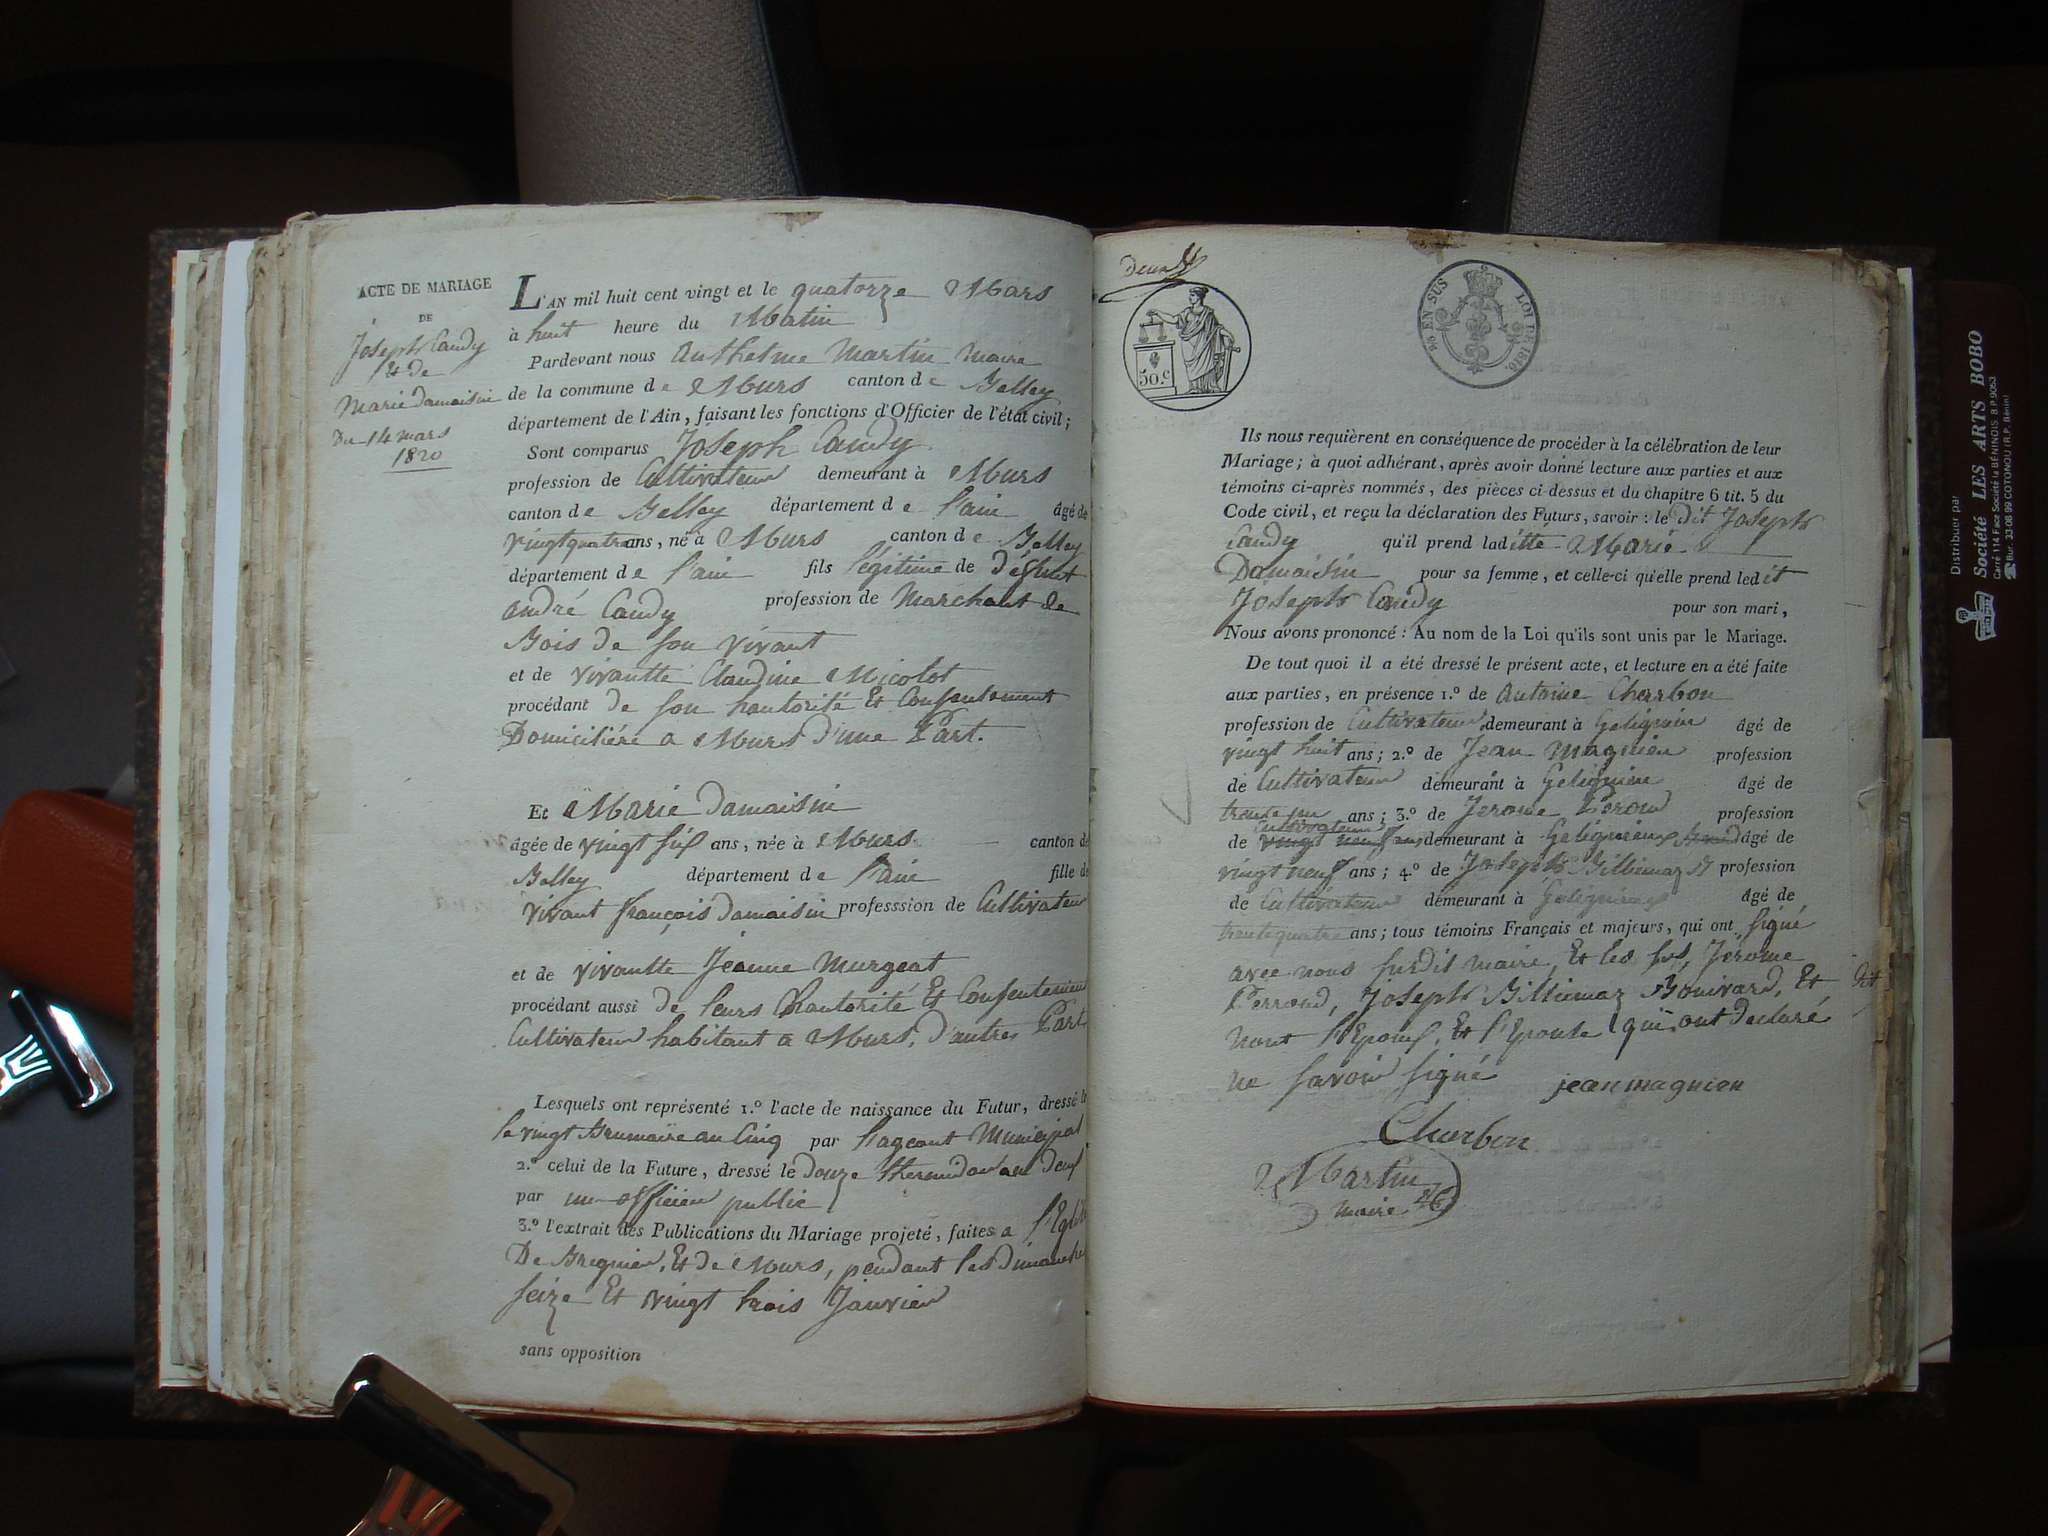 ACTE DE MARIAGE
DE
Joseph Candy
Et de
Marie Damaisin
Du 14 mars
1820
L'AN mil huit cent vingt et le quatorze Mars
à huit heure du Matin
Pardevant nous Anthelme Martin Maire
de la commune de Murs canton de Belley
département de l'Ain, faisant les fonctions d'Officier de l'état civil;
Sont comparus Joseph Candy
profession de Cultivateur demeurant à Murs
canton de Belley département de l'ain âgé de
vingtquatre ans, né à Murs canton de Belley
département de l'ain fils légitime de défunt
andré Candy profession de Marchant de
Bois de son vivant
et de vivantte Claudine Micolot
procédant de son hautorité Et Consentement
Domiciliére a Murs d'une Part.
Et Marie Damaisin
âgée de vingt six ans, née à Murs canton de
Belley département de l'ain fille de
vivant françois Damaisin professsion de Cultivateur
et de vivantte Jeanne Murgeat
procédant aussi de leurs hautorité Et Consentement
Cultivateur habitant a Murs, d'autres Part
Lesquels ont représenté 1.º l'acte de naissance du Futur, dressé le
le vingt Brumaire an Cinq par l'ageant Municipal
2.º celui de la Future, dressé le Douze thermidor an deux
par un officier public
3.º l'extrait des Publications du Mariage projeté, faites a l'Eglise
De Bregnier, Et de Murs, pendant les Dimanches
seize Et vingt trois Janvier
sans opposition
50.c
EN SUS LOI DE 1816.
Ils nous requièrent en conséquence de procéder à la célébration de leur
Mariage; à quoi adhérant, après avoir donné lecture aux parties et aux
témoins ci-après nommés, des pièces ci-dessus et du chapitre 6 tit. 5 du
Code civil, et reçu la déclaration des Futurs, savoir : le dit Joseph
Candy qu'il prend laditte Marie
Damaisin pour sa femme, et celle-ci qu'elle prend ledit
Joseph Candy pour son mari,
Nous avons prononcé : Au nom de la Loi qu'ils sont unis par le Mariage.
De tout quoi il a été dressé le présent acte, et lecture en a été faite
aux parties, en présence 1.º de Antoine Charbon
profession de Cultivateur demeurant à Gelignieu âgé de
vingt huit ans; 2.º de Jean Magnien profession
de Cultivateur demeurant à Gelignieu âgé de
trente un ans; 3.º de Jerome Perrou profession
Cultivateur
de vingt neuf ans demeurant à Gelignieux âgé de
vingt neuf ans; 4.º de Joseph Billiemaz B profession
de Cultivateur démeurant à Gelignieux âgé de
trentequatre ans; tous témoins Français et majeurs, qui ont signé
avec nous susdit maire, Et les sus, Jérome
Perroud, Joseph Billiemaz Bouvard, Et dit
nont l'Epoux, Et l'Epouse qui ont declaré
ne savoir signé jean magnien
Charbon
Martin
maire
Distribuer par
Société LES ARTS BOBO
Carré 114 Face Société la BÉNINOIS B.P. 9053
Bur. 33 08 99 COTONOU (R.P. Bénin)